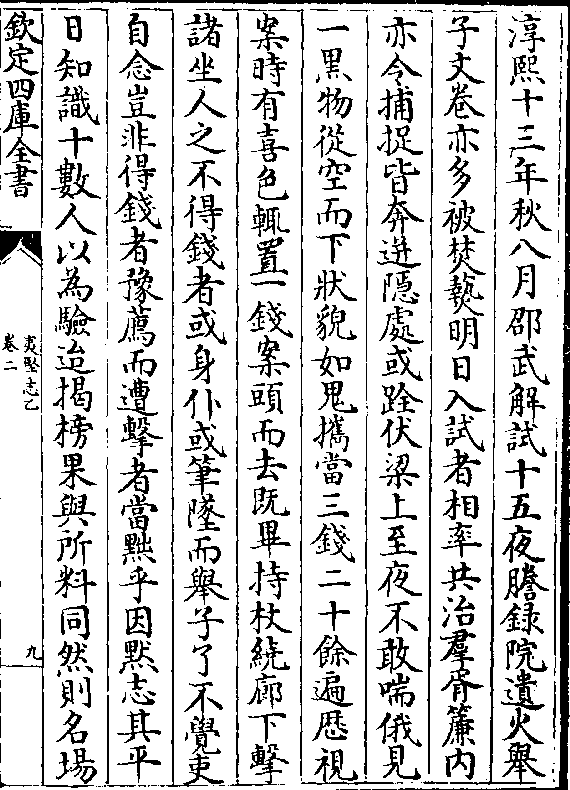 淳熙十三年秋八月邵武解試十五夜謄録院遺火舉
子文卷亦多被焚爇明日入試者相率共治羣胥簾内
亦令捕捉皆奔迸隠處或跧伏梁上至夜不敢喘俄見
一黒物從空而下狀貌如鬼攜當三錢二十餘遍歴視
案時有喜色輒置一錢案頭而去既畢持杖繞廊下擊
諸坐人之不得錢者或身仆或筆墜而舉子了不覺吏
自念豈非得錢者豫薦而遭擊者當黜乎因黙志其平
日知識十數人以為驗迨揭榜果與所料同然則名場
欽定四庫全書
夷堅志乙
卷二
九